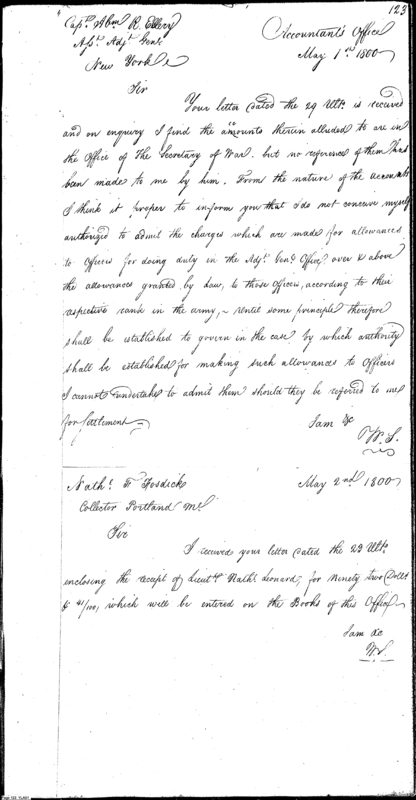 123
Capt. Abm R. Ellery
Asst. Adjt. Genl.
New York
Accountant's Office
May 1st 1800
Sir
Your letter dated the 29 Ulto. is received
and on enquiry I find the amounts therein alluded to are in
the Office of The Secretary of War, but no reference of them has
been made to me by him. From the nature of the accounts
I think it proper to inform you that I do not conceive myself
authorized to admit the charges which are made for allowances
to Officers for doing duty in the Adjt. Genl. Office, over & above
the allowances granted, by Law, to those Officers, according to their
respective rank in the army, ~ until some principle therefore
shall be established to govern in the case by which authority
shall be established for making such allowances to Officers
I cannot undertake to admit them should they be referred to me
for Settlement.
I am &c
W. S.
Nathl. F Fosdick
Collector Portland Me.
May 2nd 1800
Sir
I received your letter dated the 23 Ulto.
enclosing the receipt of Lieut. Nathl. Leonard, for Ninety two Dolls
& 41/100, which will be entered on the Books of this Office
I am &c
W. S.